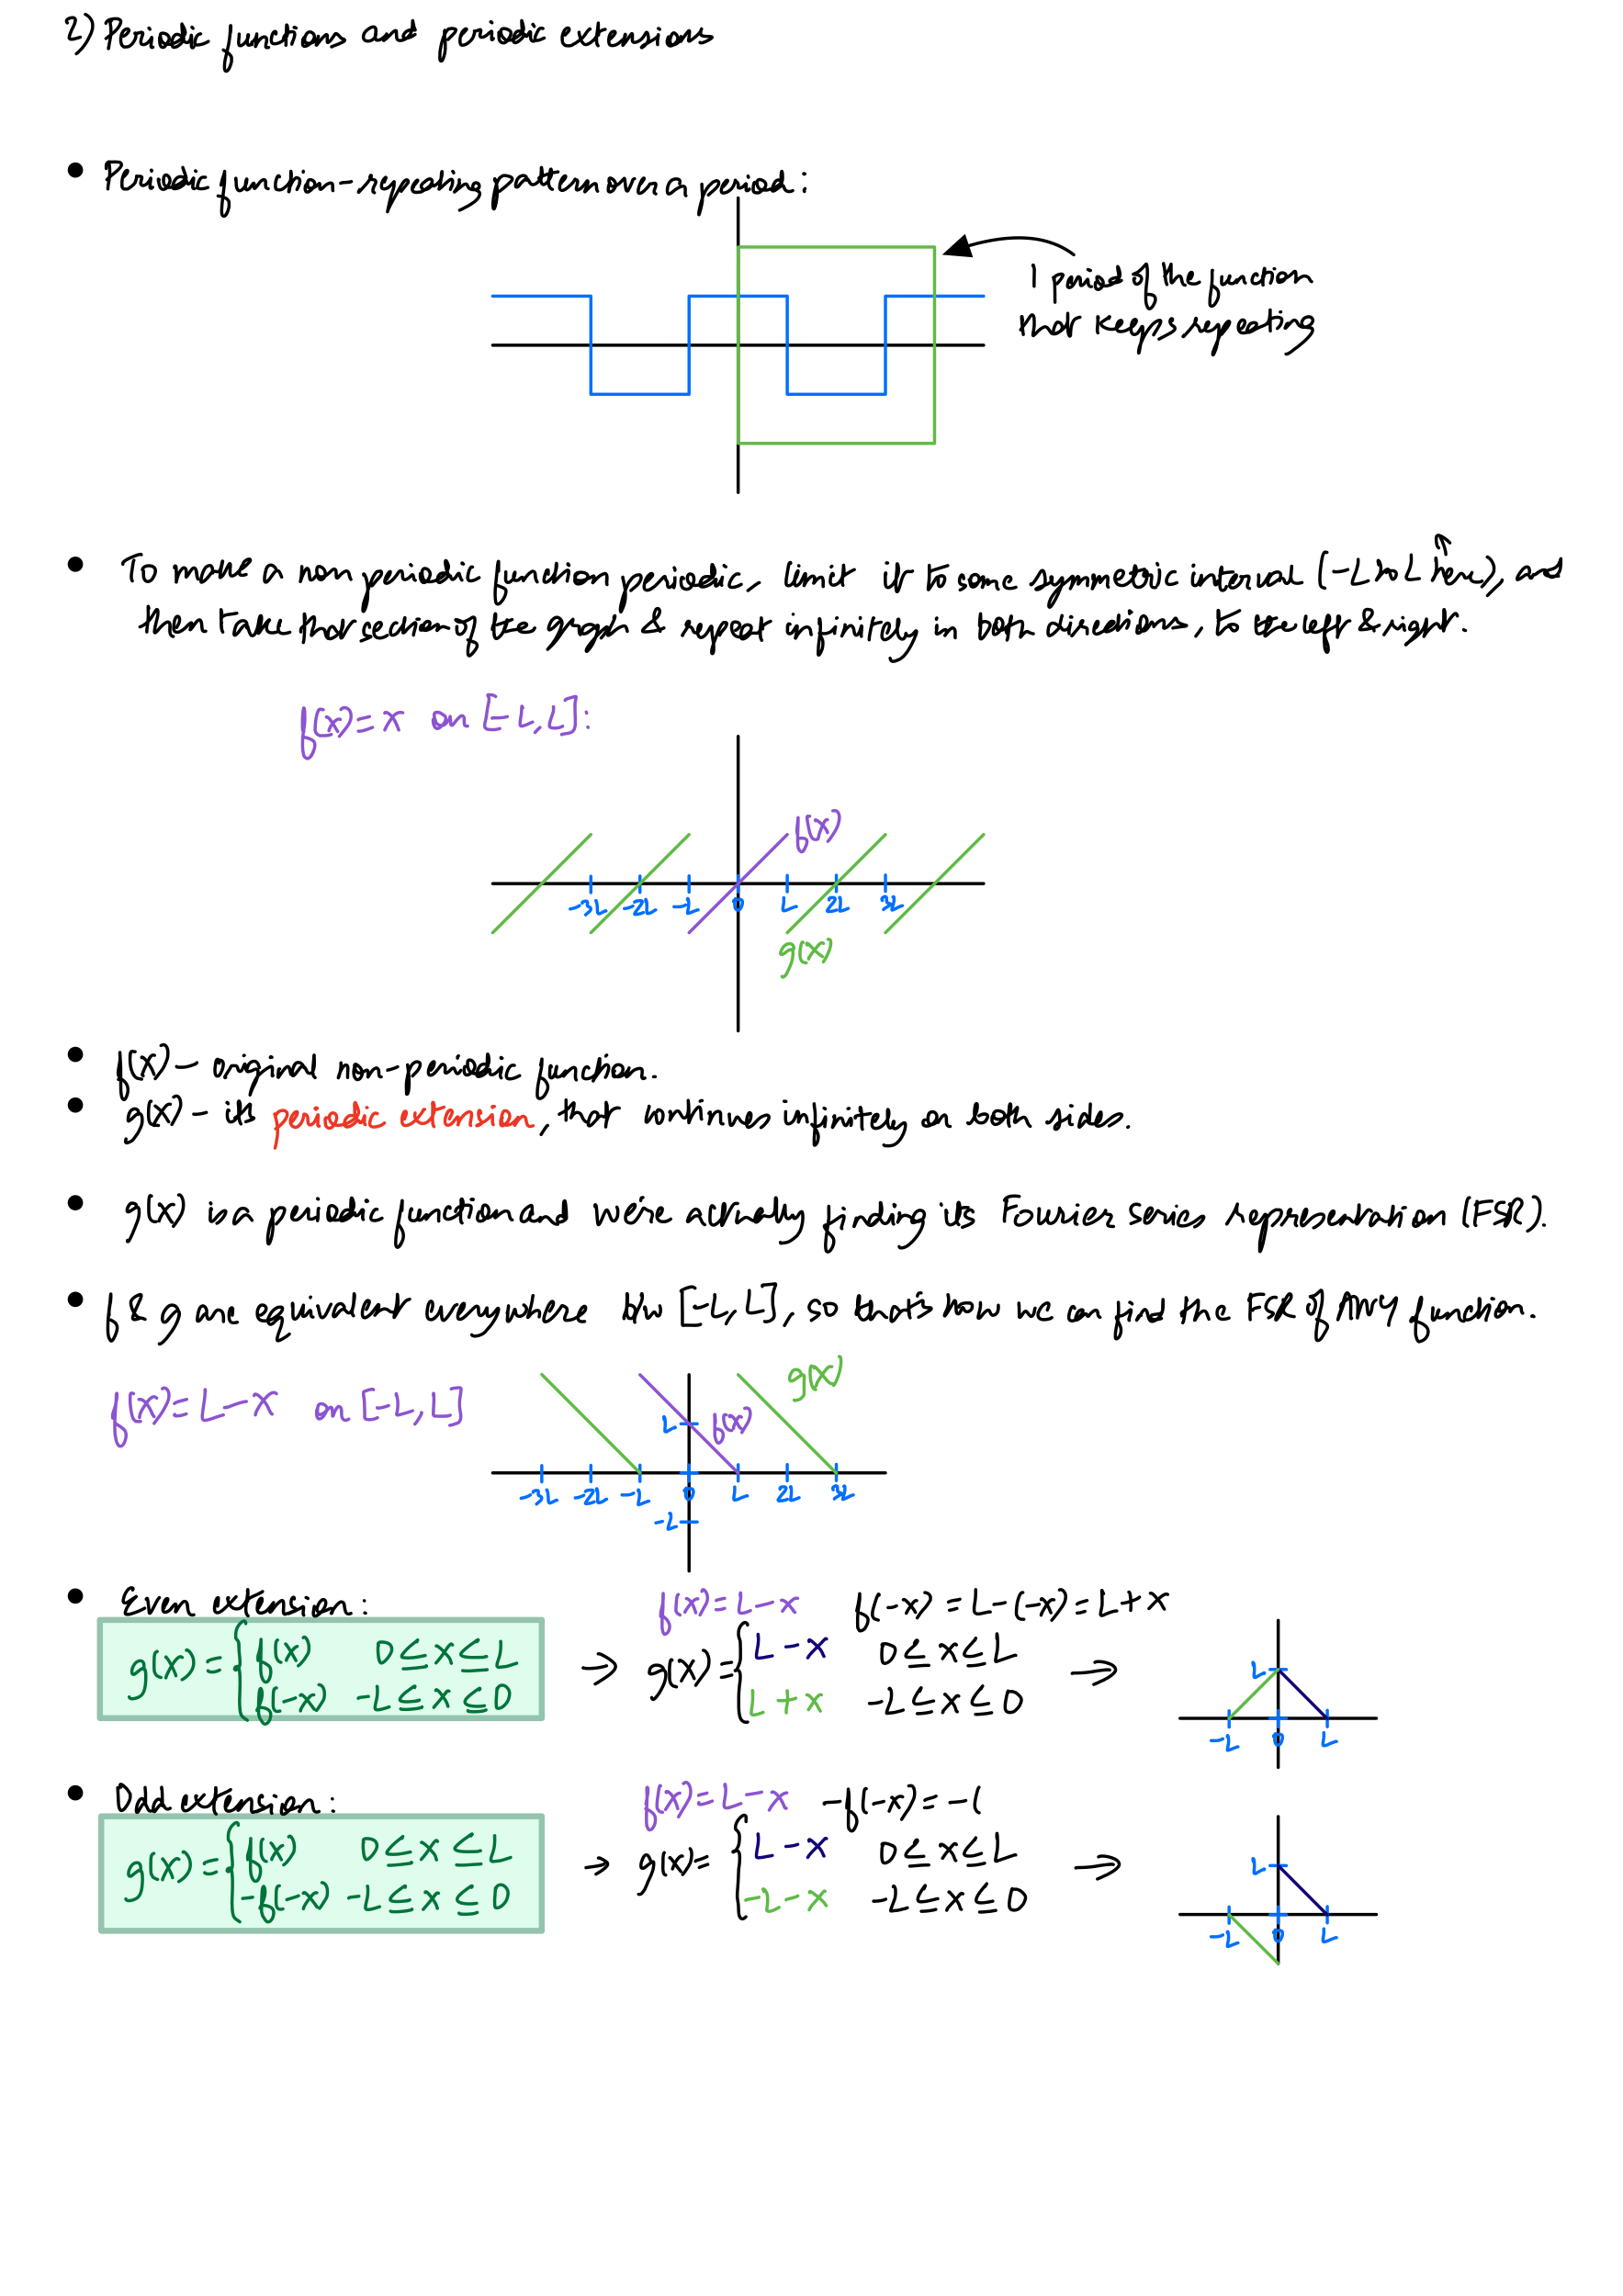 2) Periodic functions and periodic extensions
• Periodic function - repeating pattern over a period:
1 period of the function
that keeps repeating
• To make a non periodic function periodic, limit it to some symmetric interval (-L to L here), and
then take that section of the graph & repeat infinitely in both directions, to the left & right.
f(x) = x on [-L, L]:
f(x)
-3L -2L -L 0 L 2L 3L
g(x)
• f(x) - original non-periodic function.
• g(x) - its periodic extension, that continues infinitely on both sides.
• g(x) is a periodic function and we're actually finding its Fourier Series representation (FSR).
• f & g are equivalent everywhere b/w [-L, L], so that's how we can find the FSR of ANY function.
g(x)
f(x) = L - x on [-L, L]
L f(x)
-3L -2L -L 0 L 2L 3L
-L
• Even extension: f(x) = L - x f(-x) = L - (-x) = L + x
g(x) = { f(x) 0 ≤ x ≤ L → g(x) = { L - x 0 ≤ x ≤ L → L
f(-x) -L ≤ x ≤ 0 L + x -L ≤ x ≤ 0
-L 0 L
• Odd extension: f(x) = L - x -f(-x) = -(
g(x) = { f(x) 0 ≤ x ≤ L → g(x) = { L - x 0 ≤ x ≤ L → L
-f(-x) -L ≤ x ≤ 0 -L - x -L ≤ x ≤ 0
-L 0 L